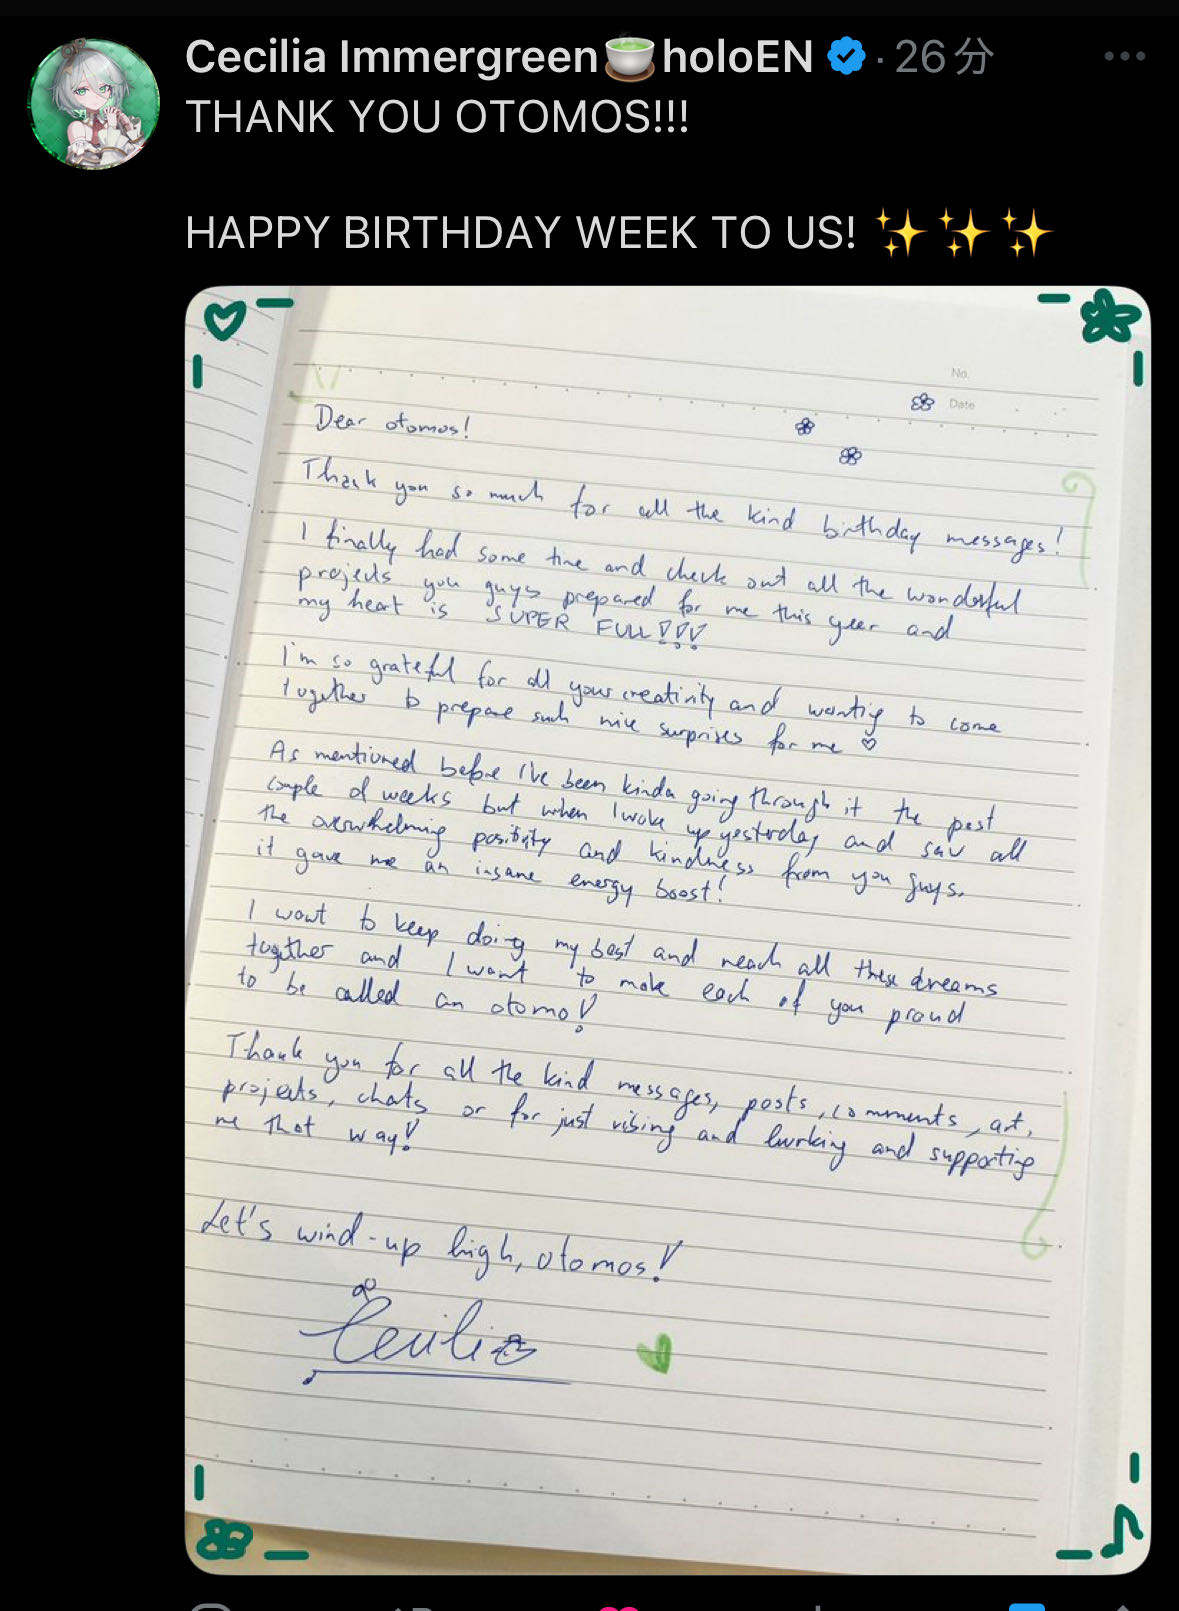 Cecilia Immergreen🍵holoEN · 26分
THANK YOU OTOMOS!!!
HAPPY BIRTHDAY WEEK TO US! ✨✨✨
No.
Date
Dear otomos!
Thank you so much for all the kind birthday messages!
I finally had some time and check out all the wonderful
projects you guys prepared for me this year and
my heart is SUPER FULL!!!
I'm so grateful for all your creativity and wanting to come
together to prepare such nice surprises for me ♡
As mentioned before I've been kinda going through it the past
couple of weeks but when I woke up yesterday and saw all
the overwhelming positivity and kindness from you guys.
it gave me an insane energy boost!
I want to keep doing my best and reach all these dreams
together and I want to make each of you proud
to be called an otomo!
Thank you for all the kind messages, posts, comments, art,
projects, chats or for just vibing and lurking and supporting
me that way!
Let's wind-up high, otomos!
Cecilia